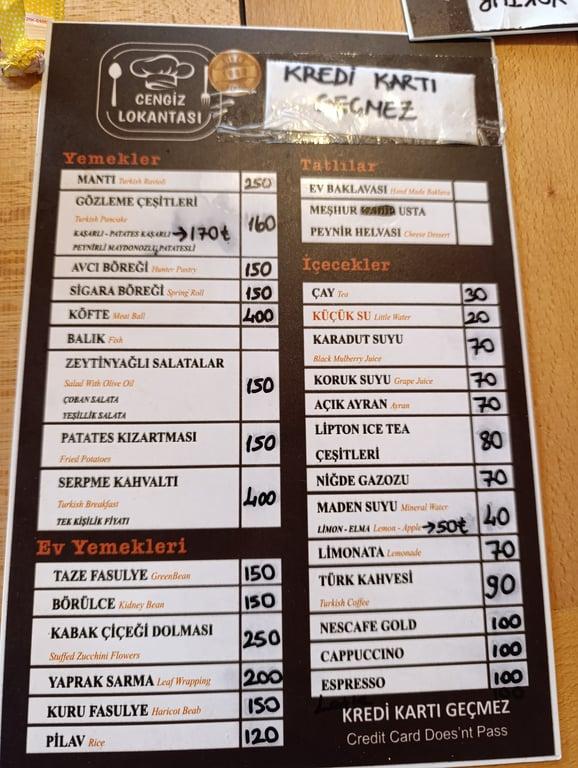 CENGİZ
LOKANTASI
KREDİ KARTI
GEÇMEZ
Yemekler
MANTI Turkish Ravioli 250
GÖZLEME ÇEŞİTLERİ
Turkish Pancake
KAŞARLI - PATATES KAŞARLI → 170₺ 160
PEYNİRLİ MAYDONOZLU, PATATESLİ
AVCI BÖREĞİ Hunter Pastry 150
SİGARA BÖREĞİ Spring Roll 150
KÖFTE Meat Ball 400
BALIK Fish
ZEYTİNYAĞLI SALATALAR
Salad With Olive Oil 150
ÇOBAN SALATA
YEŞİLLİK SALATA
PATATES KIZARTMASI 150
Fried Potatoes
SERPME KAHVALTI
Turkish Breakfast 400
TEK KİŞİLİK FİYATI
Ev Yemekleri
TAZE FASULYE GreenBean 150
BÖRÜLCE Kidney Bean 150
KABAK ÇİÇEĞİ DOLMASI 250
Stuffed Zucchini Flowers
YAPRAK SARMA Leaf Wrapping 200
KURU FASULYE Haricot Beab 150
PİLAV Rice 120
Tatlılar
EV BAKLAVASI Hand Made Baklava
MEŞHUR USTA
PEYNİR HELVASI Cheese Dessert
İçecekler
ÇAY Tea 30
KÜÇÜK SU Little Water 20
KARADUT SUYU 70
Black Mulberry Juice
KORUK SUYU Grape Juice 70
AÇIK AYRAN Ayran 70
LİPTON ICE TEA 80
ÇEŞİTLERİ
NİĞDE GAZOZU 70
MADEN SUYU Mineral Water 40
LİMON - ELMA Lemon - Apple → 50₺
LİMONATA Lemonade 70
TÜRK KAHVESİ 90
Turkish Coffee
NESCAFE GOLD 100
CAPPUCCINO 100
ESPRESSO 100
KREDİ KARTI GEÇMEZ
Credit Card Does'nt Pass